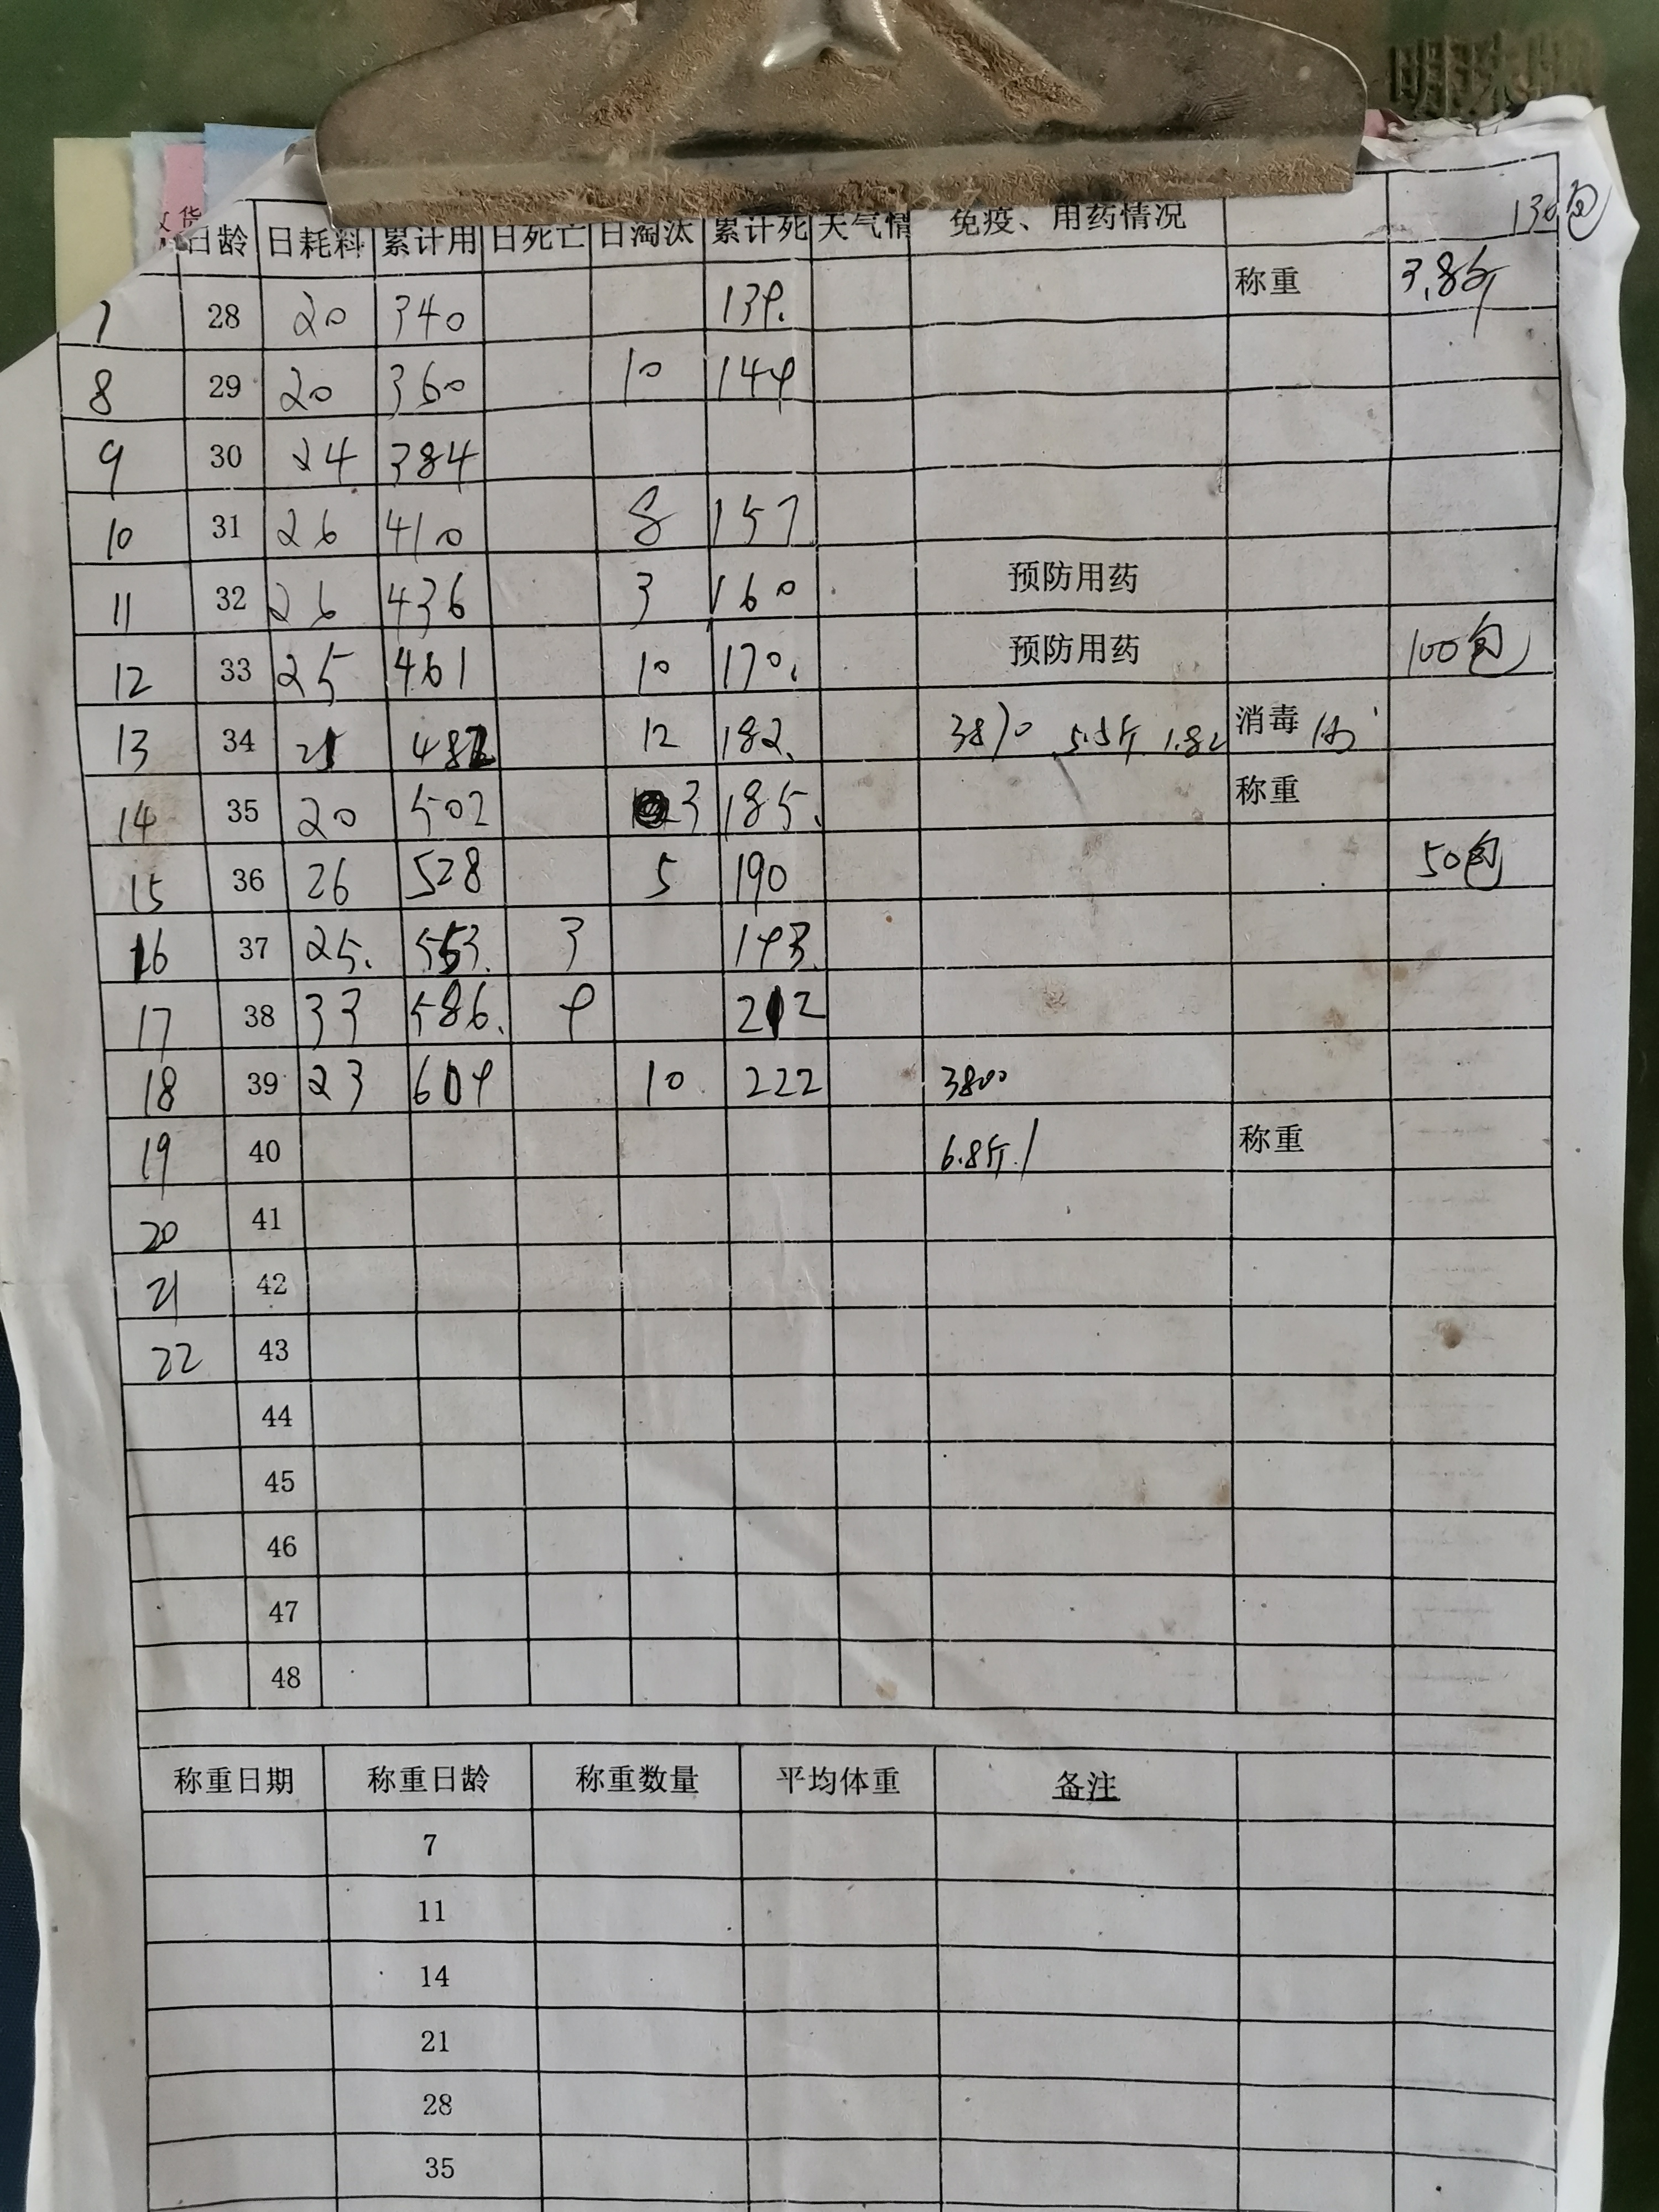 明珠
130包
日龄 日耗料 累计用 日死亡 日淘汰 累计死 天气情 免疫、用药情况
7 28 20 340 139. 称重 3.8斤
8 29 20 360 10 149
9 30 24 384
10 31 26 410 8 157
11 32 26 436 3 160 预防用药
12 33 25 461 10 170. 预防用药 100包
13 34 21 482 12 182. 5.5斤 消毒
14 35 20 502 3 185. 称重
15 36 26 528 5 190 50包
16 37 25. 553. 3 193.
17 38 33 586. 9 202
18 39 23 609 10 222 3800
19 40 6.8斤 称重
20 41
21 42
22 43
44
45
46
47
48
称重日期 称重日龄 称重数量 平均体重 备注
7
11
14
21
28
35